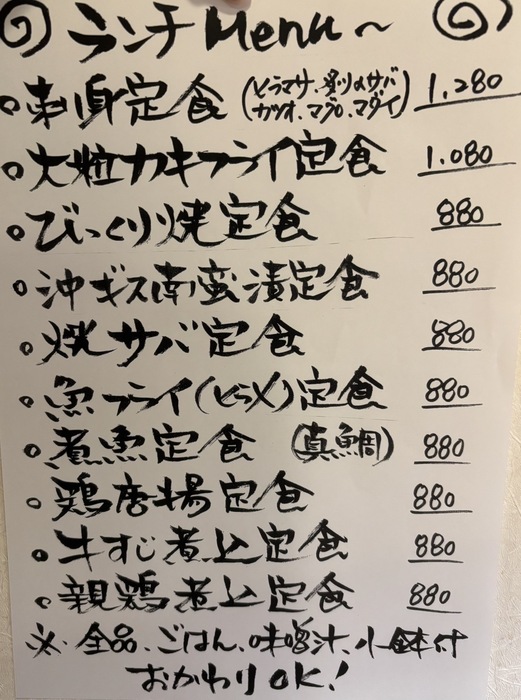 ランチMenu〜
刺身定食 (ヒラマサ、釣りのサバ カツオ、マグロ、マダイ) 1,280
大粒カキフライ定食 1,080
びっくり焼定食 880
沖ギス南蛮漬定食 880
焼サバ定食 880
魚フライ(ヒラメ)定食 880
煮魚定食 (真鯛) 880
鶏唐揚定食 880
牛すじ煮込定食 880
親鶏煮込定食 880
※全品、ごはん、味噌汁、小鉢付
おかわりOK!